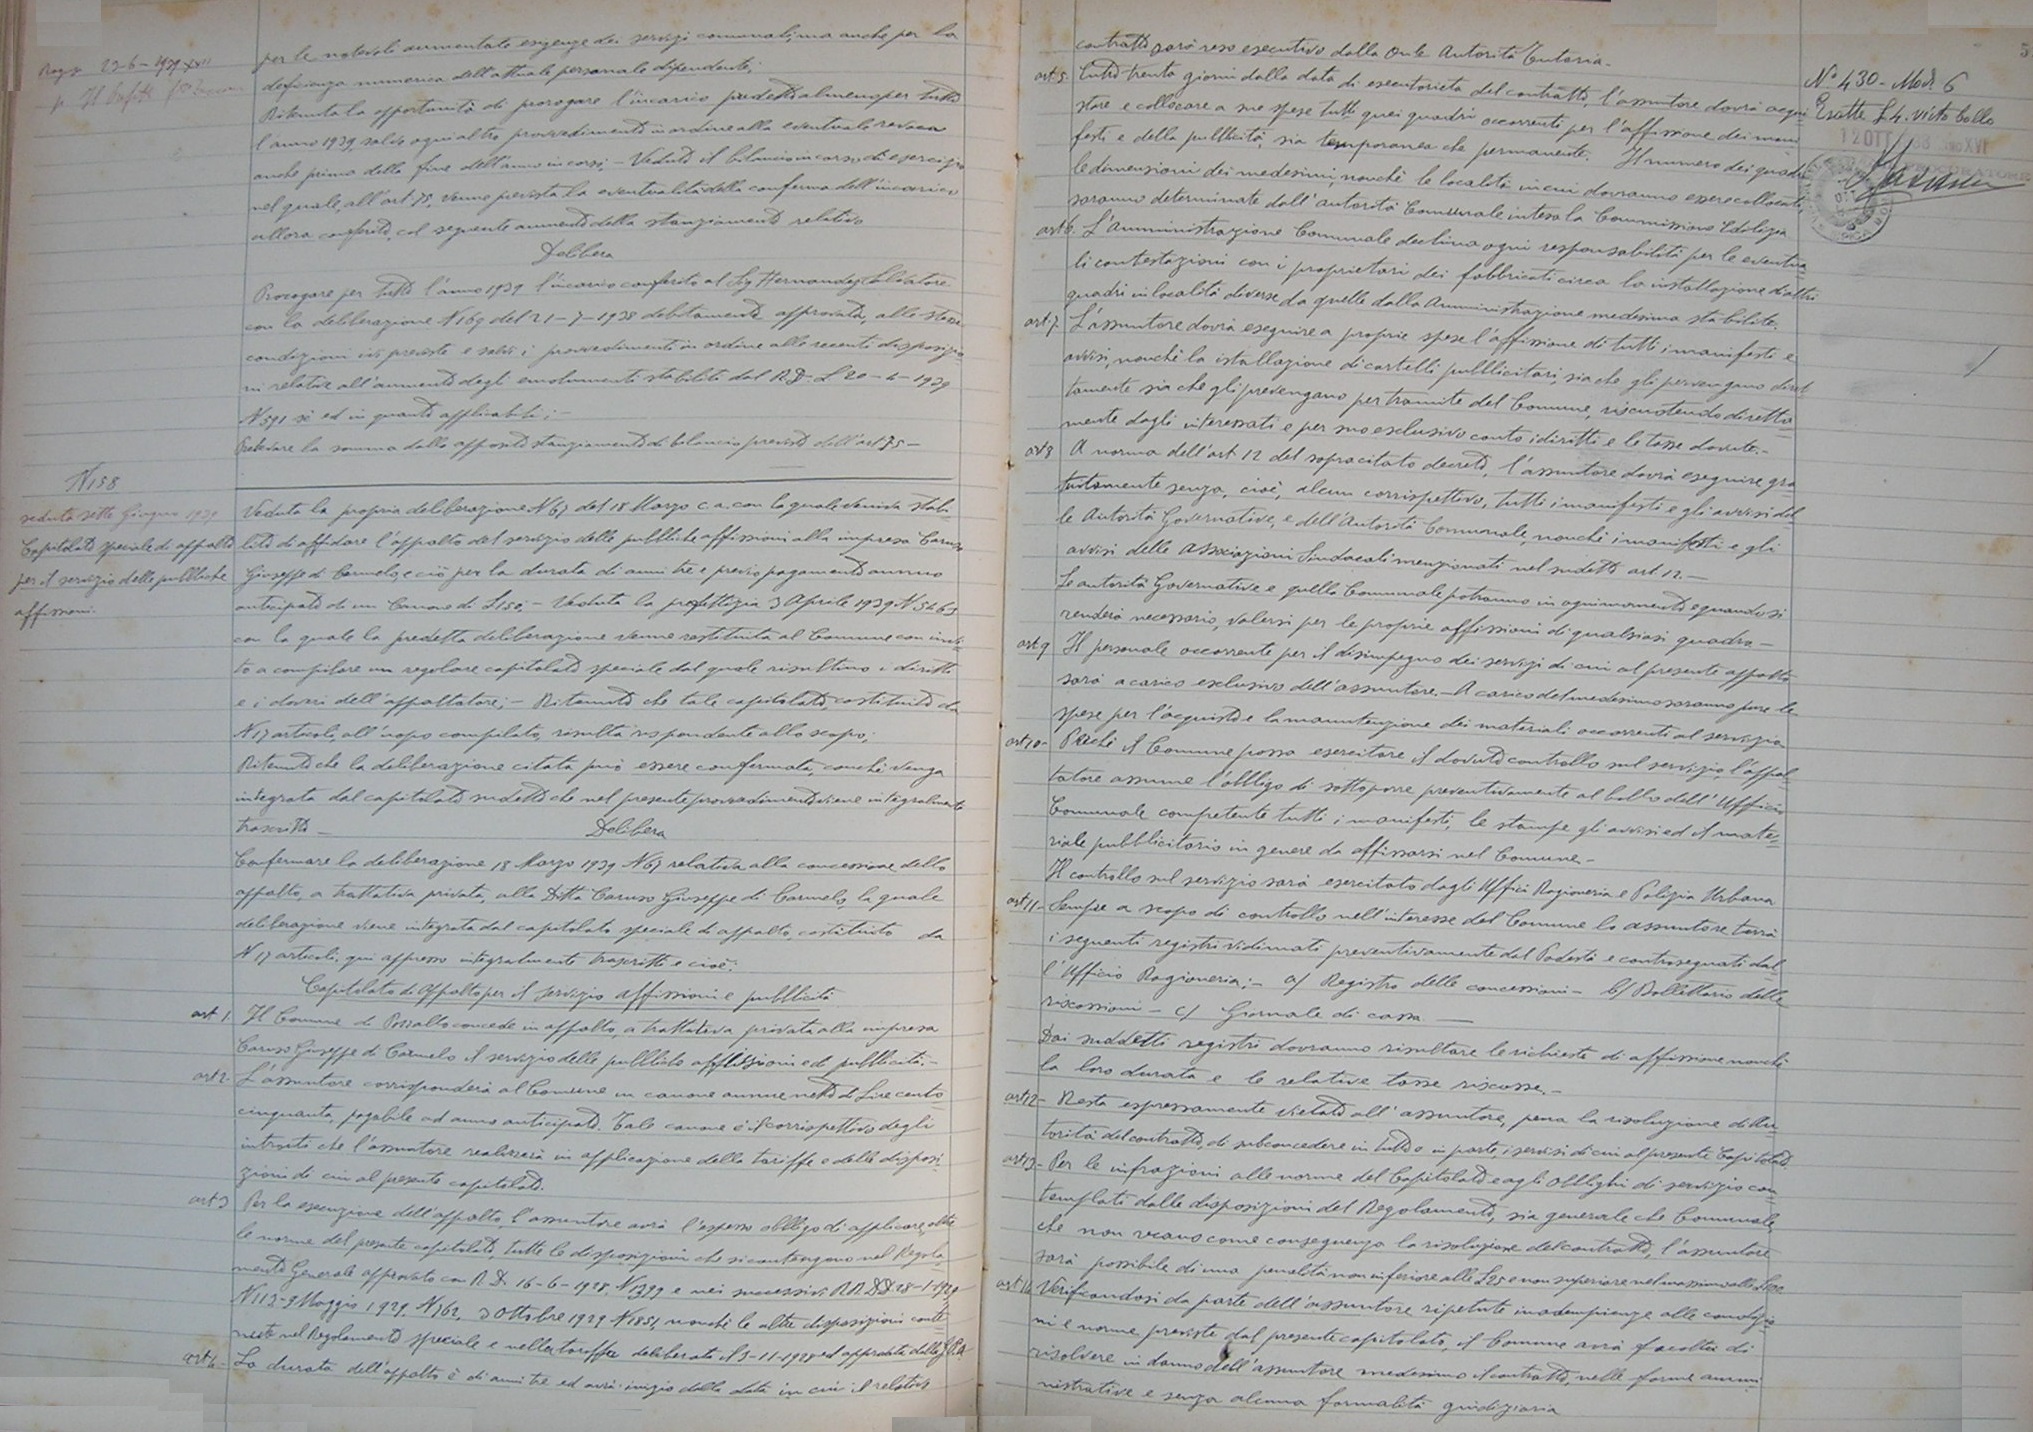 per le notevoli aumentate esigenze dei servizi comunali, ma anche per la
deficienza numerica dell'attuale personale dipendente;
Ritenuta la opportunità di prorogare l'incarico predetto almeno per tutto
l'anno 1939, salvo ogni altro provvedimento in ordine alla eventuale revoca
anche prima della fine dell'anno in corso; - Veduto il bilancio in corso di esercizio
nel quale, all'art 75, venne prevista la eventualità della conferma dell'incarico
allora conferito, col seguente aumento dello stanziamento relativo
Delibera
Prorogare per tutto l'anno 1939 l'incarico conferito al Sig Hernandez Salvatore
con la deliberazione N 169 del 21-7-1938 debitamente approvata, alle stesse
condizioni ivi previste e salvi i provvedimenti in ordine alle recenti disposizio
ni relative all'aumento degli emolumenti stabiliti dal R.D.L 20-4-1939
N 591 se ed in quanto applicabili; -
Prelevare la somma dallo apposito stanziamento di bilancio previsto dell'art 75 -
N 158
seduta sette Giugno 1939
Capitolato speciale di appalto
per il servizio delle pubbliche
affissioni.
Veduta la propria deliberazione N 67 del 18 Marzo c.a. con la quale veniva stabi-
lito di affidare l'appalto del servizio delle pubbliche affissioni alla impresa Caruso
Giuseppe di Carmelo, e ciò per la durata di anni tre e previo pagamento annuo
anticipato di un Canone di L 150; - Veduta la prefettizia 3 Aprile 1939 N 5463
con la quale la predetta deliberazione venne restituita al Comune con invi-
to a compilare un regolare capitolato speciale dal quale risultino i diritti
e i doveri dell'appaltatore; - Ritenuto che tale capitolato, costituito da
N 17 articoli, all'uopo compilato, risulta rispondente allo scopo;
Ritenuto che la deliberazione citata può essere confermata, conchè venga
integrata dal capitolato sudetto che nel presente provvedimento viene integralmente
trascritto - Delibera
Confermare la deliberazione 18 Marzo 1939 N 67 relativa alla concessione dello
appalto, a trattativa privata, alla Ditta Caruso Giuseppe di Carmelo, la quale
deliberazione viene integrata dal capitolato speciale di appalto, costituito da
N 17 articoli, qui appresso integralmente trascritti e cioè:
Capitolato di Appalto per il servizio affissioni e pubblicità
art 1. Il Comune di Pozzallo concede in appalto, a trattativa privata alla impresa
Caruso Giuseppe di Carmelo il servizio delle pubbliche affissioni ed pubblicità. -
art 2. L'assuntore corrisponderà al Comune un canone annuo netto di Lire cento
cinquanta, pagabile ad anno anticipato. Tale canone è il corrispettivo degli
introiti che l'assuntore realizzerà in applicazione della tariffa e delle disposi-
zioni di cui al presente capitolato.
art 3 Per la esecuzione dell'appalto, l'assuntore avrà l'espresso obbligo di applicare, oltre
le norme del presente capitolato, tutte le disposizioni che si contengono nel Regola-
mento Generale approvato con R.D. 16-6-1928, N 1399 e nei successivi RR.DD 28-1-1929
N 113-9 Maggio 1929, N 762, 3 Ottobre 1929 N 1851, nonchè le altre disposizioni conte
nute nel Regolamento speciale e nella tariffa deliberata il 3-11-1928 ed approvata dalla G.P.A.
art 4. La durata dell'appalto è di anni tre ed avrà inizio dalla data in cui il relativo
contratto sarà reso esecutivo dalla On.le Autorità Tutoria. -
art 5. Entro trenta giorni dalla data di esecutorietà del contratto, l'assuntore dovrà acqui
stare e collocare a sue spese tutti quei quadri occorrenti per l'affissione dei mani
festi e della pubblicità, sia temporanea che permanente. Il numero dei quadri
le dimensioni dei medesimi, nonchè le località in cui dovranno essere collocati,
saranno determinate dall'autorità Comunale intesa la Commissione Edilizia
art 6. L'Amministrazione Comunale declina ogni responsabilità per le eventua
li contestazioni con i proprietari dei fabbricati circa la installazione d'altri
quadri in località diverse da quelle dalla Amministrazione medesima stabilite.
art 7. L'assuntore dovrà eseguire a proprie spese l'affissione di tutti i manifesti e
avvisi, nonchè la istallazione di cartelli pubblicitari, sia che gli pervengano diret
tamente sia che gli provengano per tramite del Comune, riscuotendo diretta-
mente dagli interessati e per suo esclusivo conto i diritti e le tasse dovute. -
art 8 A norma dell'art 12 del sopracitato decreto, l'assuntore dovrà eseguire gra-
tuitamente senza, cioè, alcun corrispettivo, tutti i manifesti e gli avvisi del
le Autorità Governative, e dell'Autorità Comunale, nonchè i manifesti e gli
avvisi delle Associazioni Sindacali menzionati nel sudetto art 12. -
Le autorità Governative e quella Comunale potranno in ogni momento e quando si
renderà necessario, valersi per le proprie affissioni di qualsiasi quadro -
art 9 Il personale occorrente per il disimpegno dei servizi di cui al presente appalto
sarà a carico esclusivo dell'assuntore. - A carico del medesimo saranno pure le
spese per l'acquisto e la manutenzione dei materiali occorrenti al servizio
art 10- Perchè il Comune possa esercitare il dovuto controllo sul servizio, l'appal-
tatore assume l'obbligo di sottoporre preventivamente al bollo dell'Ufficio
Comunale competente tutti i manifesti, le stampe gli avvisi ed il mate-
riale pubblicitario in genere da affissarsi nel Comune. -
Il controllo sul servizio sarà esercitato dagli Uffici Ragioneria e Polizia Urbana
art 11- Sempre a scopo di controllo nell'interesse del Comune lo assuntore terrà
i seguenti registri vidimati preventivamente dal Podestà e contrasegnati dal
l'Ufficio Ragioneria: - a) Registro delle concessioni - b) Bollettario delle
riscossioni - c) Giornale di cassa -
Dai suddetti registri dovranno risultare le richieste di affissione nonchè
la loro durata e le relative tasse riscosse. -
art 12- Resta espressamente vietato all'assuntore, pena la risoluzione di Au-
torità del contratto, di subconcedere in tutto o in parte, i servizi di cui al presente Capitolato
art 13- Per le infrazioni alle norme del Capitolato e agli obblighi di servizio con
templati dalle disposizioni del Regolamento, sia generale che Comunale,
che non recano come conseguenza la risoluzione del contratto, l'assuntore
sarà possibile di una penalità non inferiore alle L 25 e non superiore nel massimo alle L
art 14 Verificandosi da parte dell'assuntore ripetute inadempienze alle condizio
ni e norme previste dal presente capitolato, il Comune avrà facoltà di
risolvere in danno dell'assuntore medesimo il contratto, nelle forme ammi
nistrative e senza alcuna formalità giudiziaria
N° 430 - Mod. 6
Esatte L 4. visto bollo
12 OTT